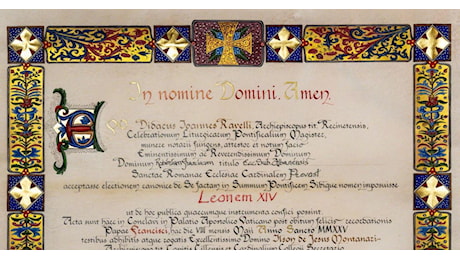 In nomine Domini. Amen.
Ego Didacus Ioannes Ravelli, Archiepiscopus tit. Recinetensis,
Celebrationum Liturgicarum Pontificalium Magister,
munere notarii fungens, attestor et notum facio
Eminentissimum ac Reverendissimum Dominum
Dominum Robertum Franciscum titulo Eccl. Sub. Albanensis
Sanctae Romanae Ecclesiae Cardinalem Prevost
acceptasse electionem canonice de Se factam in Summum Pontificem Sibique nomen imposuisse
Leonem XIV
ut de hoc publica quaecumque instrumenta confici possint.
Acta sunt haec in Conclavi in Palatio Apostolico Vaticano post obitum felicis recordationis
Papae Francisci, hac die VIII mensis Maii Anno Sancto MMXXV
testibus adhibitis atque rogatis Excellentissimo Domino Ilson de Jesus Montanari
Archiepiscopo tit. Capitis Cillensis et Cardinalium Collegii Secretario